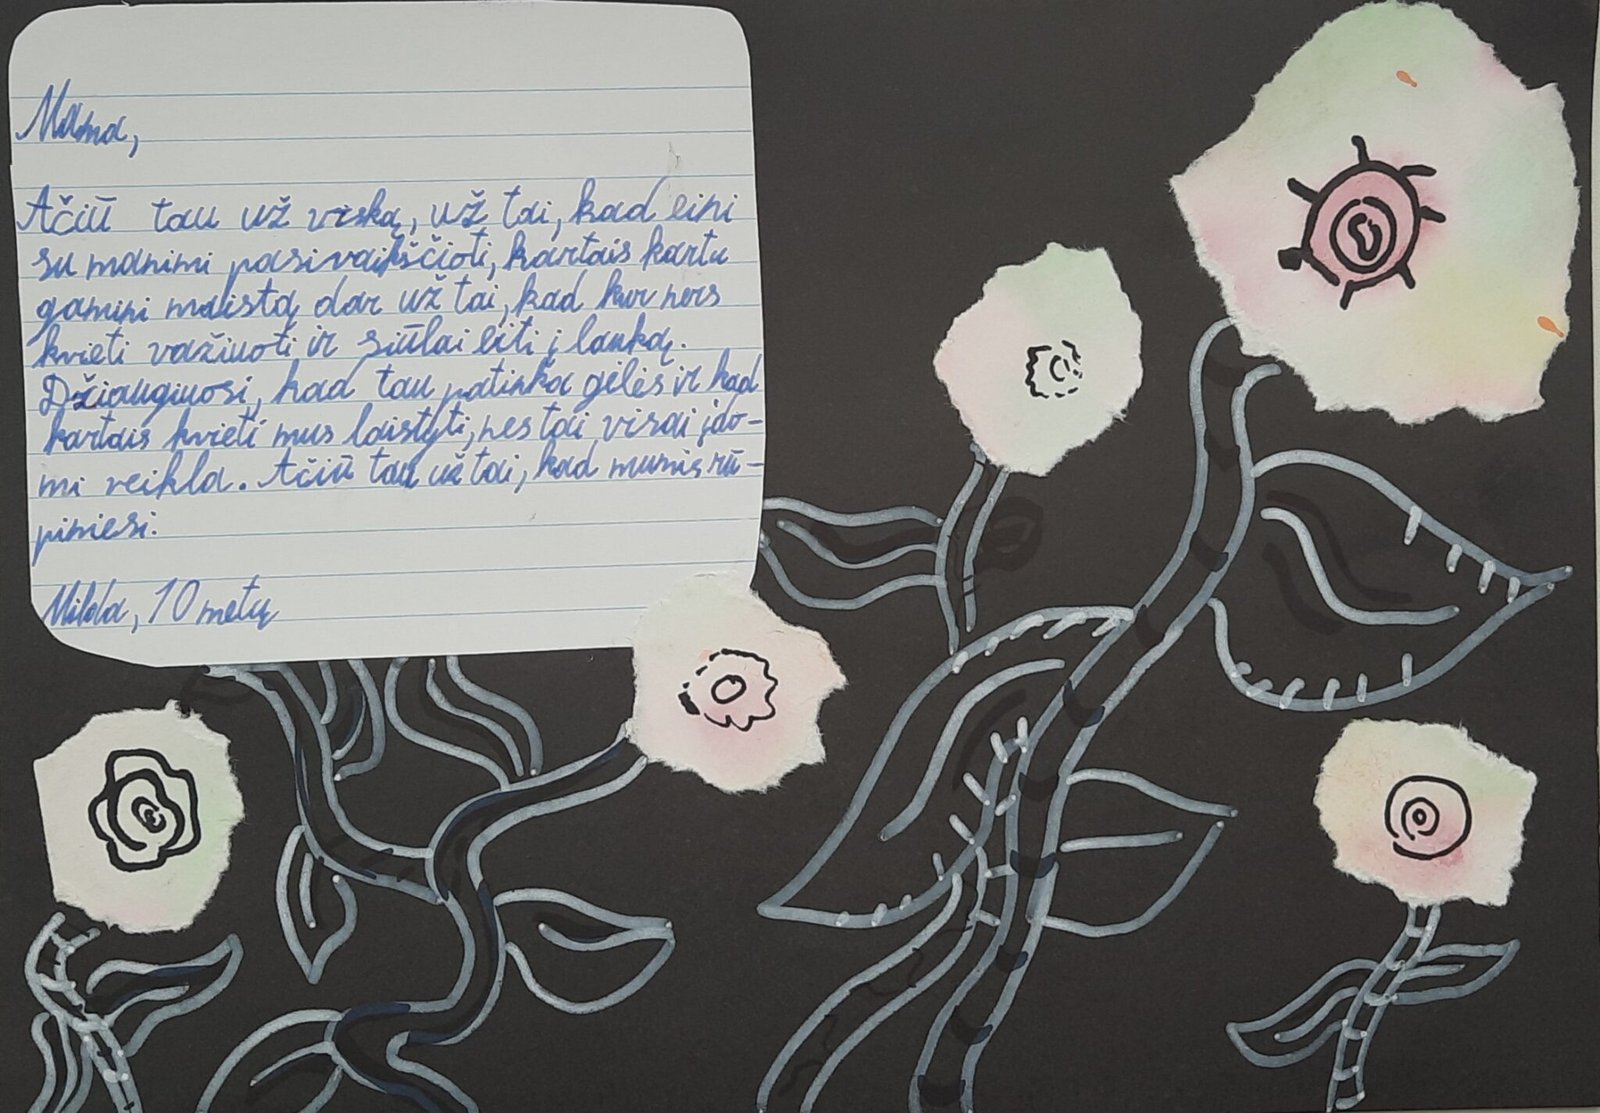 Mama,
Ačiū tau už viską, už tai, kad eini
su manimi pasivaikščioti, kartais kartu
gamini maistą dar už tai, kad kur nors
kvieti važiuoti ir siūlai eiti į lauką.
Džiaugiuosi, kad tau patinka gėlės ir kad
kartais kvieti mus laistyti, nes tai visai įdo-
mi veikla. Ačiū tau už tai, kad mumis rū-
piniesi.
Milda, 10 metų